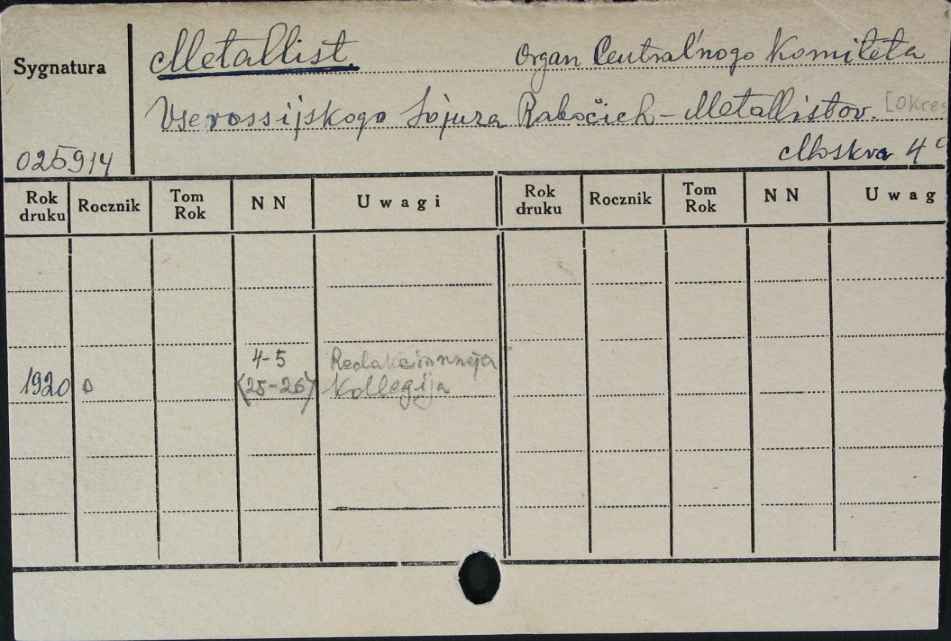 Sygnatura
Metallist. Organ Central'nogo Komiteta
Vserossijskogo Sojuza Rabočich-Metallistov. [Okres
025914
Moskva 4°
Rok druku Rocznik Tom Rok NN Uwagi Rok druku Rocznik Tom Rok NN Uwag
4-5 Redakcionnaja
1920 (25-26) Kollegija